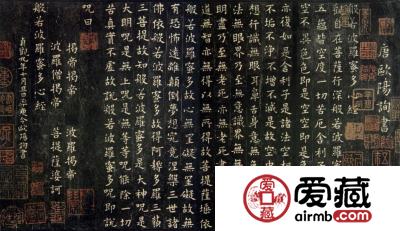 唐歐陽詢書
般若波羅蜜多心經
觀自在菩薩行深般若波羅
五蘊皆空度一切苦厄舍利
空空不異色色即是空空
亦復如是舍利子是諸法空
不垢不淨不增不減是故空
想行識無眼耳鼻舌身意無
法無眼界乃至無意識界無
明盡乃至無老死亦無老死
道無智亦無得以無所得故菩提薩埵依
般若波羅蜜多故心無罣礙無罣礙故無
有恐怖遠離顛倒夢想究竟涅槃三世諸
佛依般若波羅蜜多故得阿耨多羅三藐
三菩提故知般若波羅蜜多是大神咒是
大明咒是無上咒是無等等咒能除一切
苦真實不虛故說般若波羅蜜多咒即說
咒曰
揭帝揭帝 波羅揭帝
波羅僧揭帝 菩提薩婆訶
般若波羅蜜多心經
貞觀九年十月旦日率更令歐陽詢書
爱藏
airmb.com